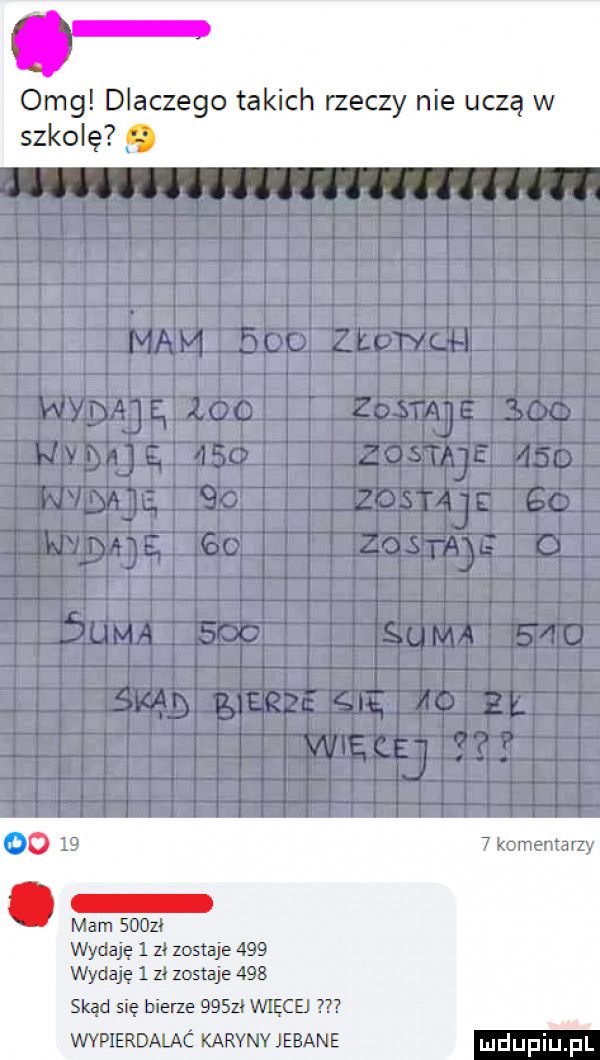 Omg! Dlaczego takich rzeczy nie uczą w
szkolę?
MAM 500 ZŁOTYCH
WYDAJĘ 200 ZOSTAJE 300
WYDAJĘ 150 ZOSTAJE 150
WYDAJĘ 90 ZOSTAJE 60
WYDAJĘ 60 ZOSTAJE 0
SUMA 500 SUMA 510
SKĄD BIERZE SIĘ 10 ZŁ
WIĘCEJ ???
19 7 komentarzy
Mam 500zł
Wydaję 1 zł zostaje 499
Wydaję 1 zł zostaje 498
Skąd się bierze 995zł WIĘCEJ ???
WYPIERDALAĆ KARYNY JEBANE
mdupiu.pl